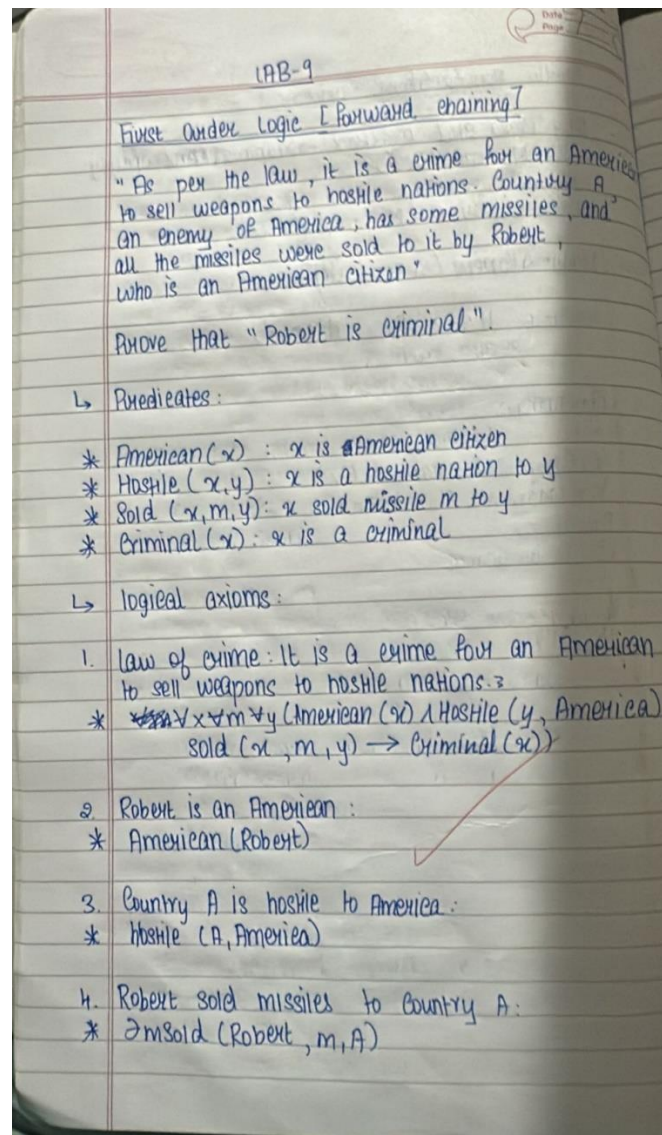 Date
Page
LAB-9
First Order Logic [Forward chaining]
"As per the law, it is a crime for an America
to sell weapons to hostile nations. Country A,
an enemy of America, has some missiles, and
all the missiles were sold to it by Robert,
who is an American citizen"
Prove that "Robert is criminal".
↳ Predicates:
* American(x) : x is American citizen
* Hostile (x,y) : x is a hostile nation to y
* Sold (x,m,y): x sold missile m to y
* Criminal(x): x is a criminal
↳ logical axioms:
1. Law of crime: It is a crime for an American
to sell weapons to hostile nations.
* ∀x∀m∀y (American (x) ∧ Hostile (y, America)
sold (x, m, y) → Criminal (x))
2. Robert is an American :
* American (Robert)
3. Country A is hostile to America :
* Hostile (A, America)
4. Robert sold missiles to Country A:
* ∃mSold (Robert, m, A)